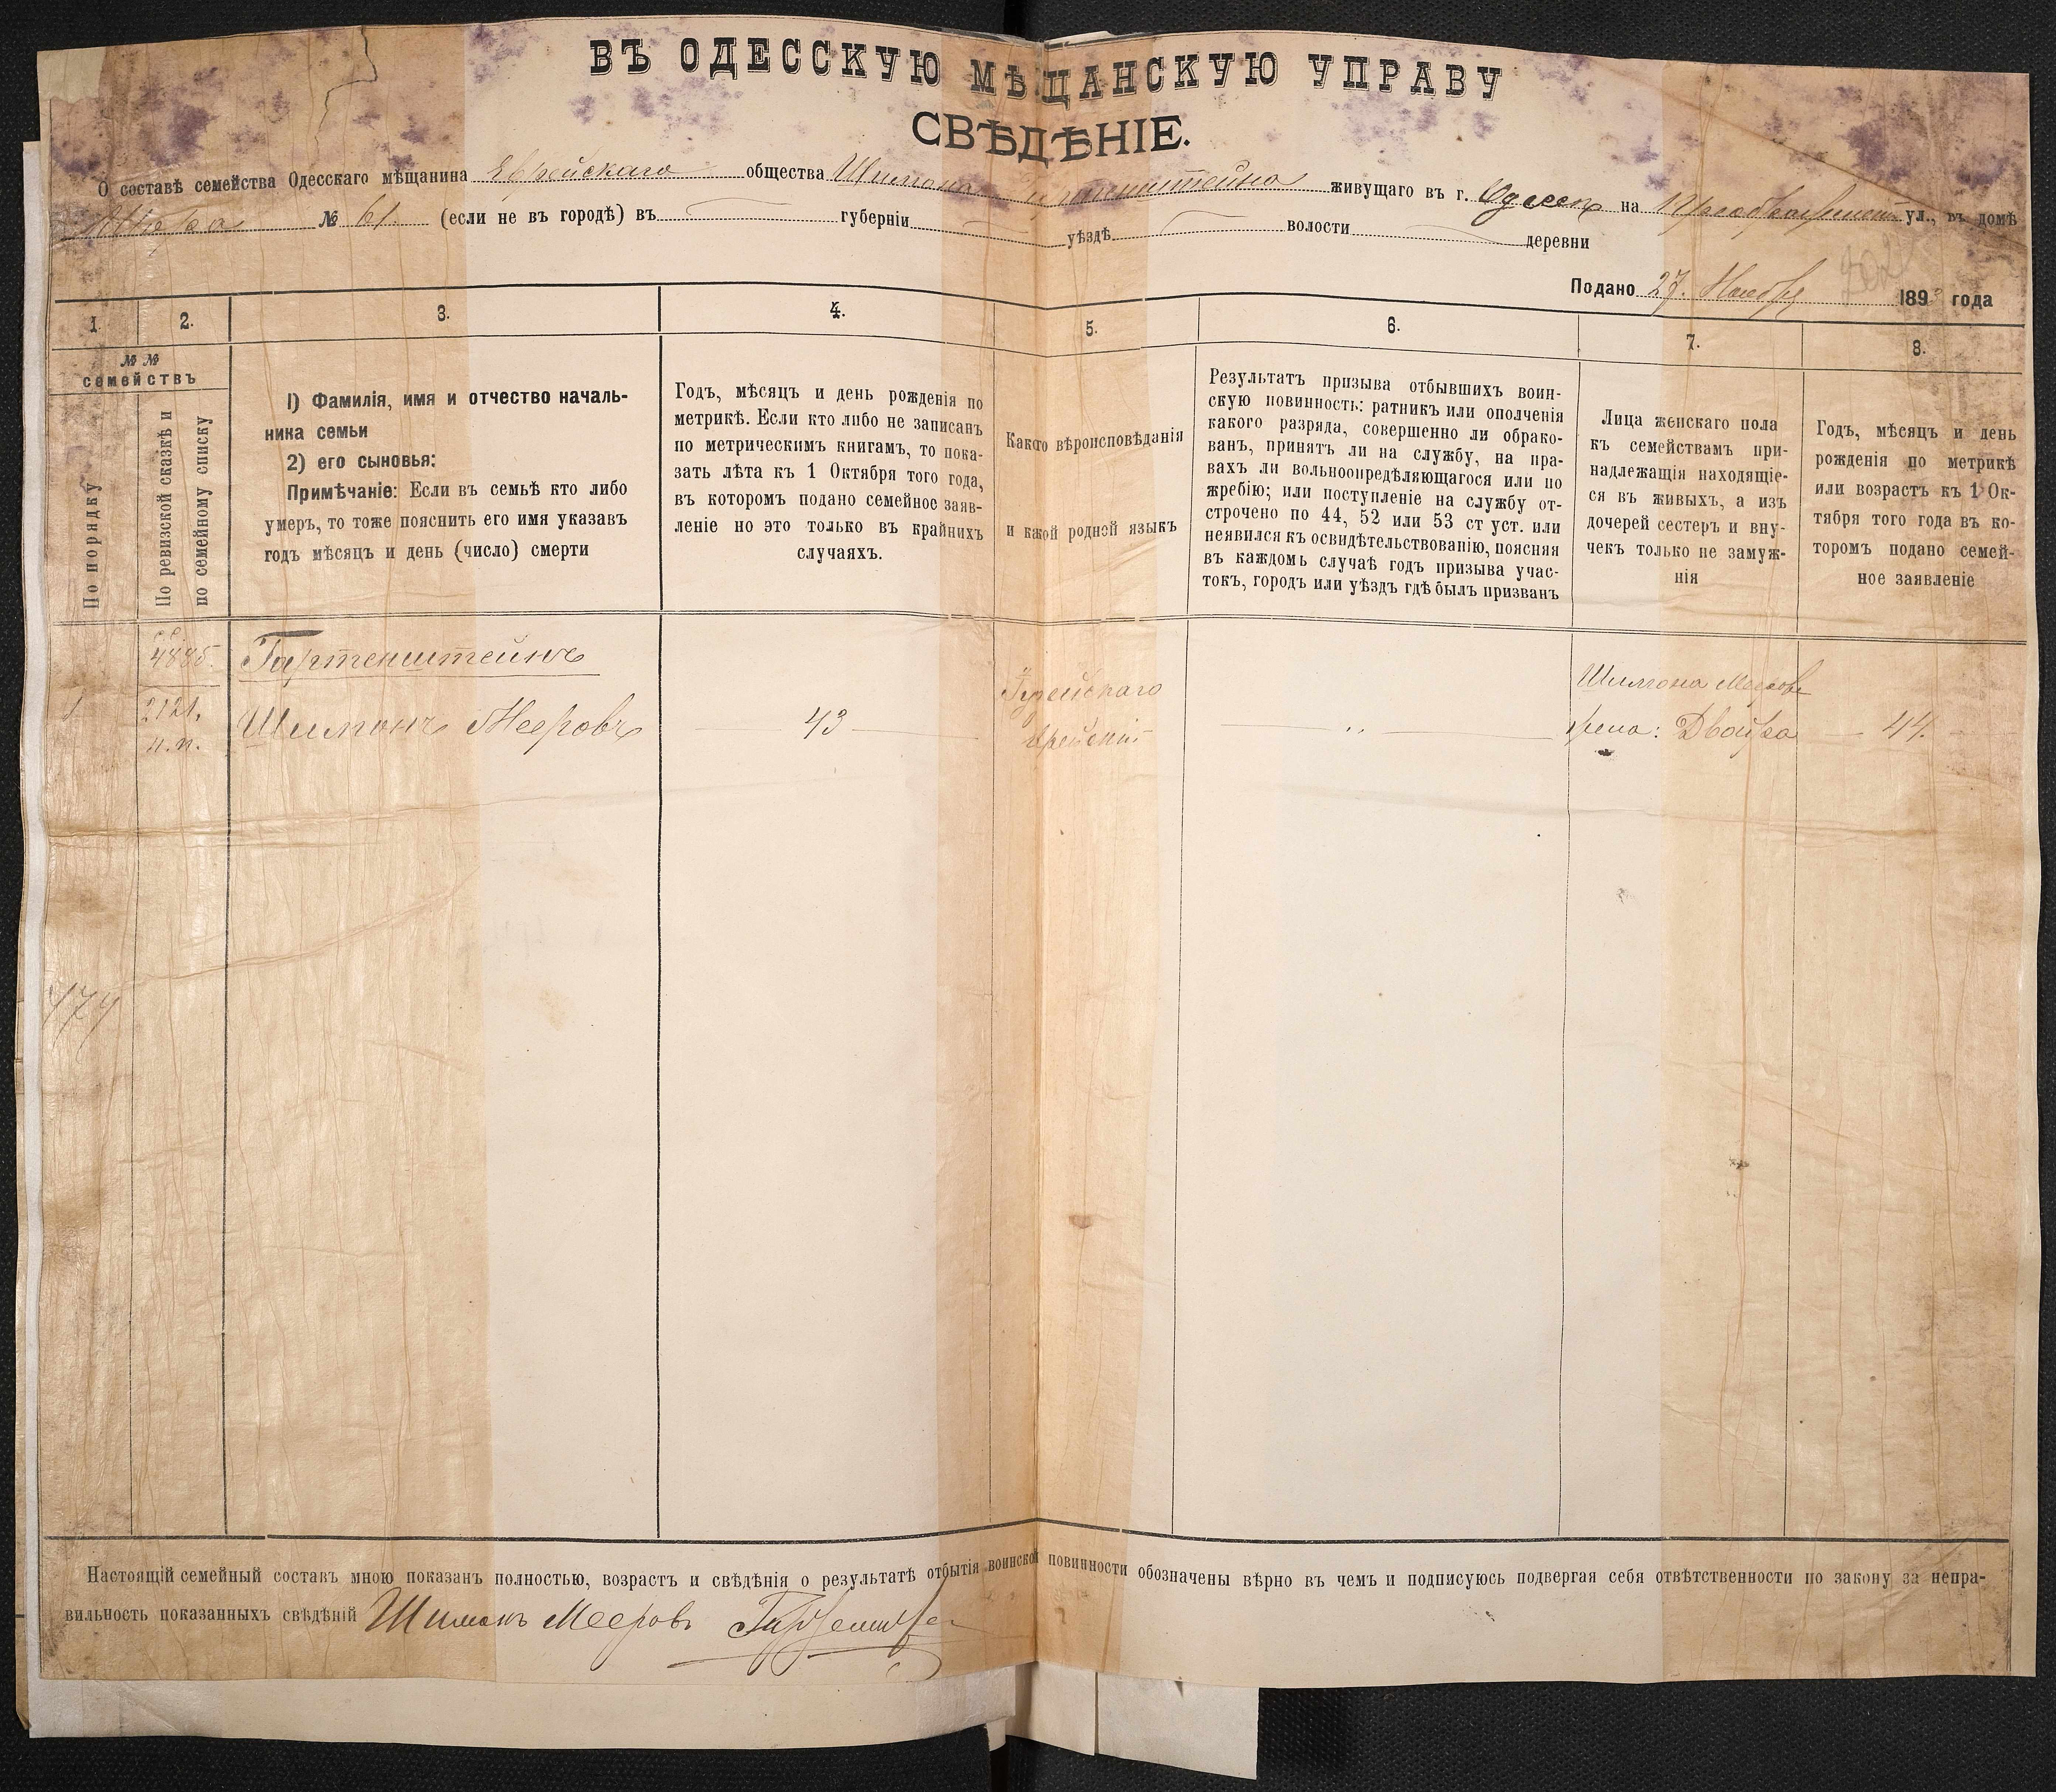 ВЪ ОДЕССКУЮ МѢЩАНСКУЮ УПРАВУ
СВѢДѢНІЕ.
О составѣ семейства Одесскаго мѣщанина Еврейскаго общества Шимона Гартенштейна живущаго въ г. Одессѣ на Преображенск ул., въ домѣ
№ 61. (если не въ городѣ) въ губерніи уѣздѣ волости деревни
Подано 27. Ноября 189 года
1. 2. 3. 4. 5. 6. 7. 8.
№ №
семействъ
По порядку
По ревизской сказкѣ и
по семейному списку
I) Фамилія, имя и отчество началь-
ника семьи
2) его сыновья:
Примѣчаніе: Если въ семьѣ кто либо
умеръ, то тоже пояснить его имя указавъ
годъ мѣсяцъ и день (число) смерти
Годъ, мѣсяцъ и день рожденія по
метрикѣ. Если кто либо не записанъ
по метрическимъ книгамъ, то пока-
зать лѣта къ 1 Октября того года,
въ которомъ подано семейное заяв-
леніе но это только въ крайнихъ
случаяхъ.
Какого вѣроисповѣданія
и какой родной языкъ
Результатъ призыва отбывшихъ воин-
скую повинность: ратникъ или ополченія
какого разряда, совершенно ли обрако-
ванъ, принятъ ли на службу, на пра-
вахъ ли вольноопредѣляющагося или по
жребію; или поступленіе на службу от-
строчено по 44, 52 или 53 ст уст. или
неявился къ освидѣтельствованію, поясняя
въ каждомъ случаѣ годъ призыва учас-
токъ, городъ или уѣздъ гдѣ былъ призванъ
Лица женскаго пола
къ семействамъ при-
надлежащія находящіе-
ся въ живыхъ, а изъ
дочерей сестеръ и вну-
чекъ только не замуж-
нія
Годъ, мѣсяцъ и день
рожденія по метрикѣ
или возрастъ къ 1 Ок-
тября того года въ ко-
торомъ подано семей-
ное заявленіе
4885. Гартенштейнъ
1 2121, Шимонъ Мееровъ 43
н.п.
Іудейскаго
Еврейскій
Шимона Меерова
жена: Двойра 44.
474
Настоящій семейный составъ мною показанъ полностью, возрастъ и свѣдѣнія о результатѣ отбытія воинской повинности обозначены вѣрно въ чемъ и подписуюсь подвергая себя отвѣтственности по закону за непра-
вильность показанныхъ свѣдѣній Шимонъ Мееровъ